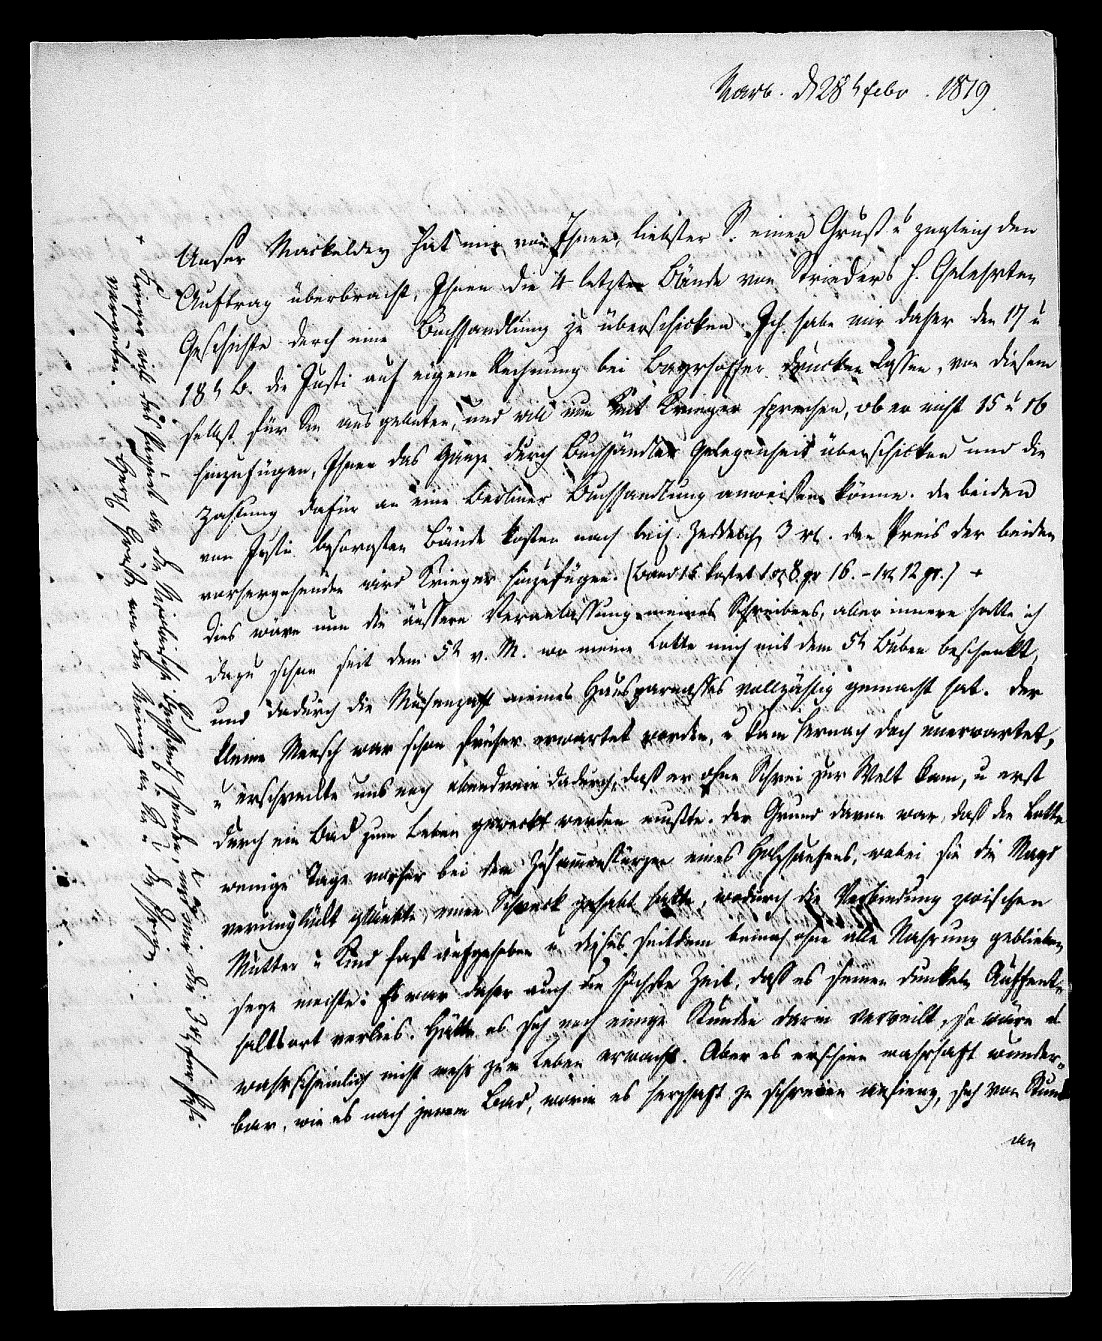 Marb. d 28t Febr. 1819.
Unser Mackeldey hat mir von Ihnen, liebster S. einen Gruß u zugleich den
Auftrag überbracht, Ihnen die 4 letzten Bände von Strieders h. Gelehrten
Geschichte durch eine Buchhandlung zu überschicken. Ich habe nur daher den 17 u
18t B. die Justi auf eigene Rechnung bei Bayrhoffer drucken lassen, von diesem
selbst für Sie ausgebeten, und will nun mit Krieger sprechen, ob er nicht 15 u 16
hinzufügen, Ihnen das Ganze durch Buchhändler Gelegenheit überschicken und die
Zahlung dafür an eine Berliner Buchhandlung anweisen könne. Die beiden
von Justi besorgten Bände kosten nach beif. Zeddelch 3 rl. den Preis der beiden
vorhergehenden wird Krieger hinzufügen. (Band 15 kostet 1 rl 8. gr 16. - 1 rl 12 gr.) +
Dies wäre nun die äussere Veranlassung meines Schreibens, aber innere hatte ich
dazu schon seit dem 5t v. M. wo meine Lotte mich mit dem 5t Buben beschenkt,
und dadurch die Musenzahl meines Hausparnasses vollzählig gemacht hat. Der
kleine Mensch war schon früher erwartet worden, u kam hernach doch unerwartet,
u erschreckte uns noch obendrein dadurch, daß er ohne Schrei zur Welt kam, u erst
durch ein Bad zum Leben geweckt werden mußte. Der Grund davon war, daß die Lotte
wenige Tage vorher bei dem Zusammenstürzen eines Holzhaufens, wobei sie die Magd
verunglückt glaubte, einen Schreck gehabt hatte, wodurch die Verbindung zwischen
Mutter u Kind fast aufgehoben u dieses seitdem beinah ohne alle Nahrung geblieben
seyn mochte. Es war daher auch die höchste Zeit, daß es seinen dunkeln Auffent-
haltsort verlies. Hätte es sich noch einige Stunden darin verweilt, so wäre es
wahrscheinlich nicht mehr zum Leben erwacht. Aber es erschien wahrhaft wunder-
bar, wie es nach jenem Bad, worin es herzhaft zu schreien anfieng, sich von Stund
an
+ Krieger will das Paquet an die Nicolaische Buchhandl. senden, u